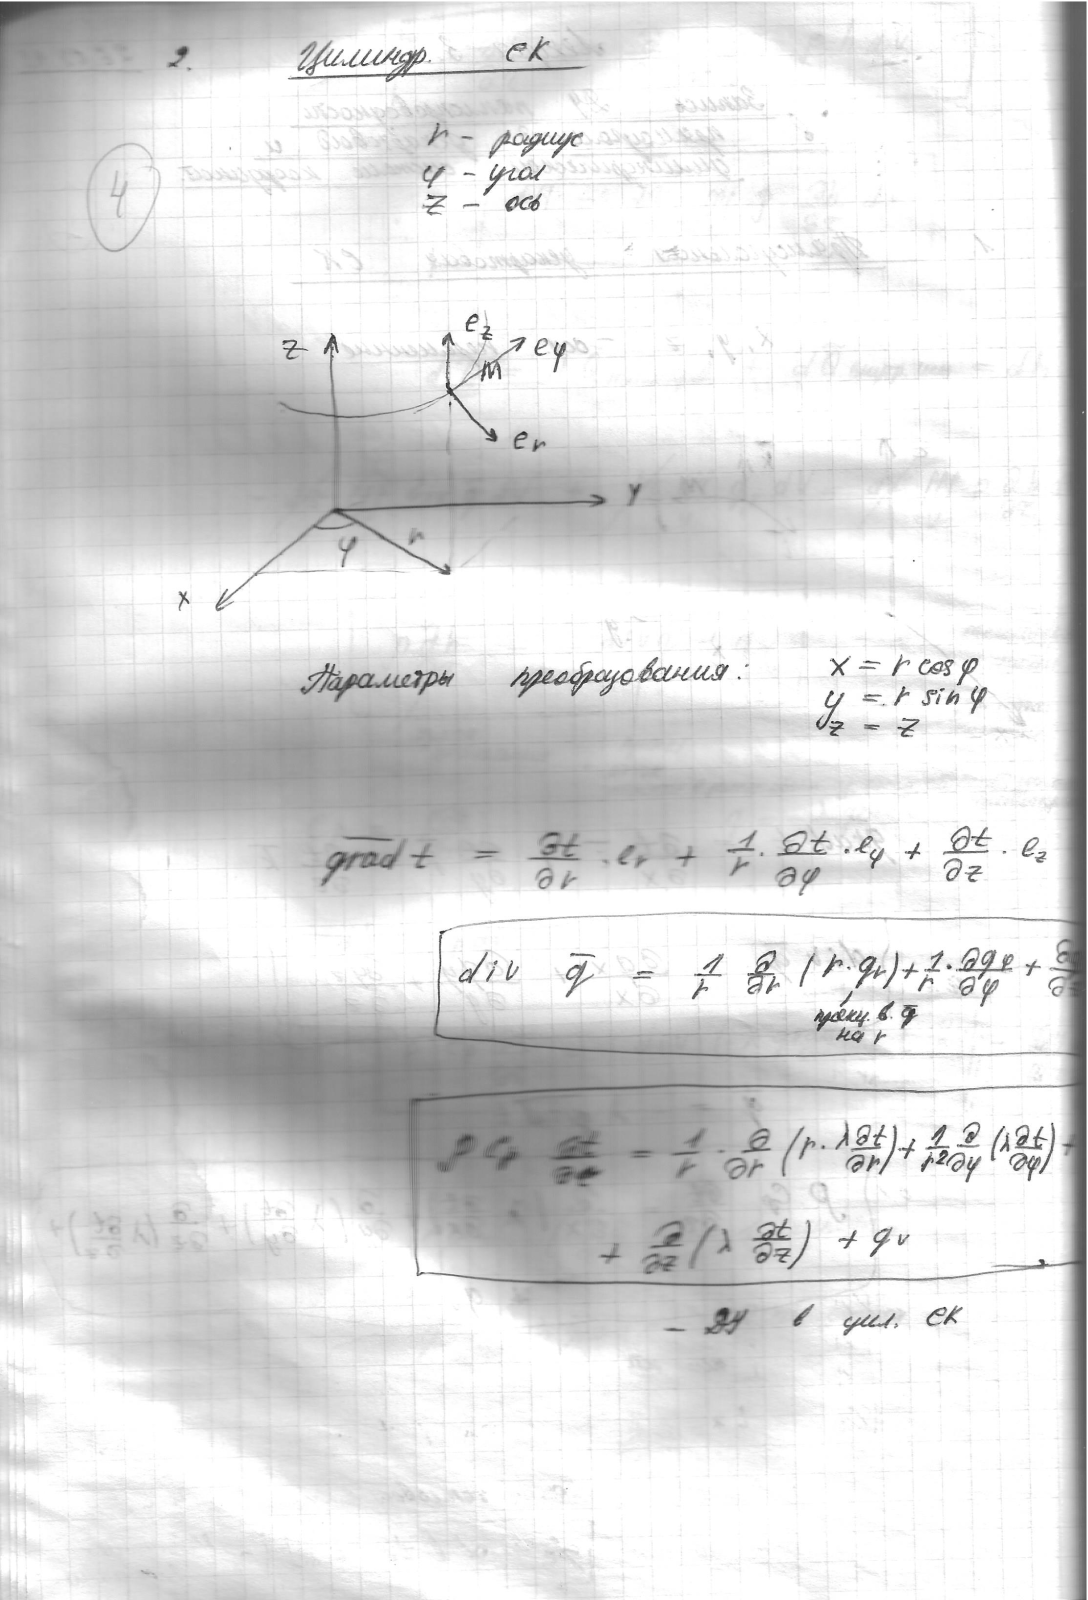 2. Цилиндр. СК
r – радиус
φ – угол
z – ось
4
z
e_z
e_φ
M
e_r
y
φ
r
x
Параметры преобразования: x = r cosφ
y = r sinφ
z = z
grad t = ∂t/∂r · e_r + 1/r · ∂t/∂φ · e_φ + ∂t/∂z · e_z
div q̅ = 1/r ∂/∂r (r · q_r) + 1/r · ∂q_φ/∂φ +
проекц. в. q̅
на r
ρ C_p ∂t/∂τ = 1/r · ∂/∂r (r · λ ∂t/∂r) + 1/r² ∂/∂φ (λ ∂t/∂φ) +
+ ∂/∂z (λ ∂t/∂z) + q_v
– ДУ в цил. СК